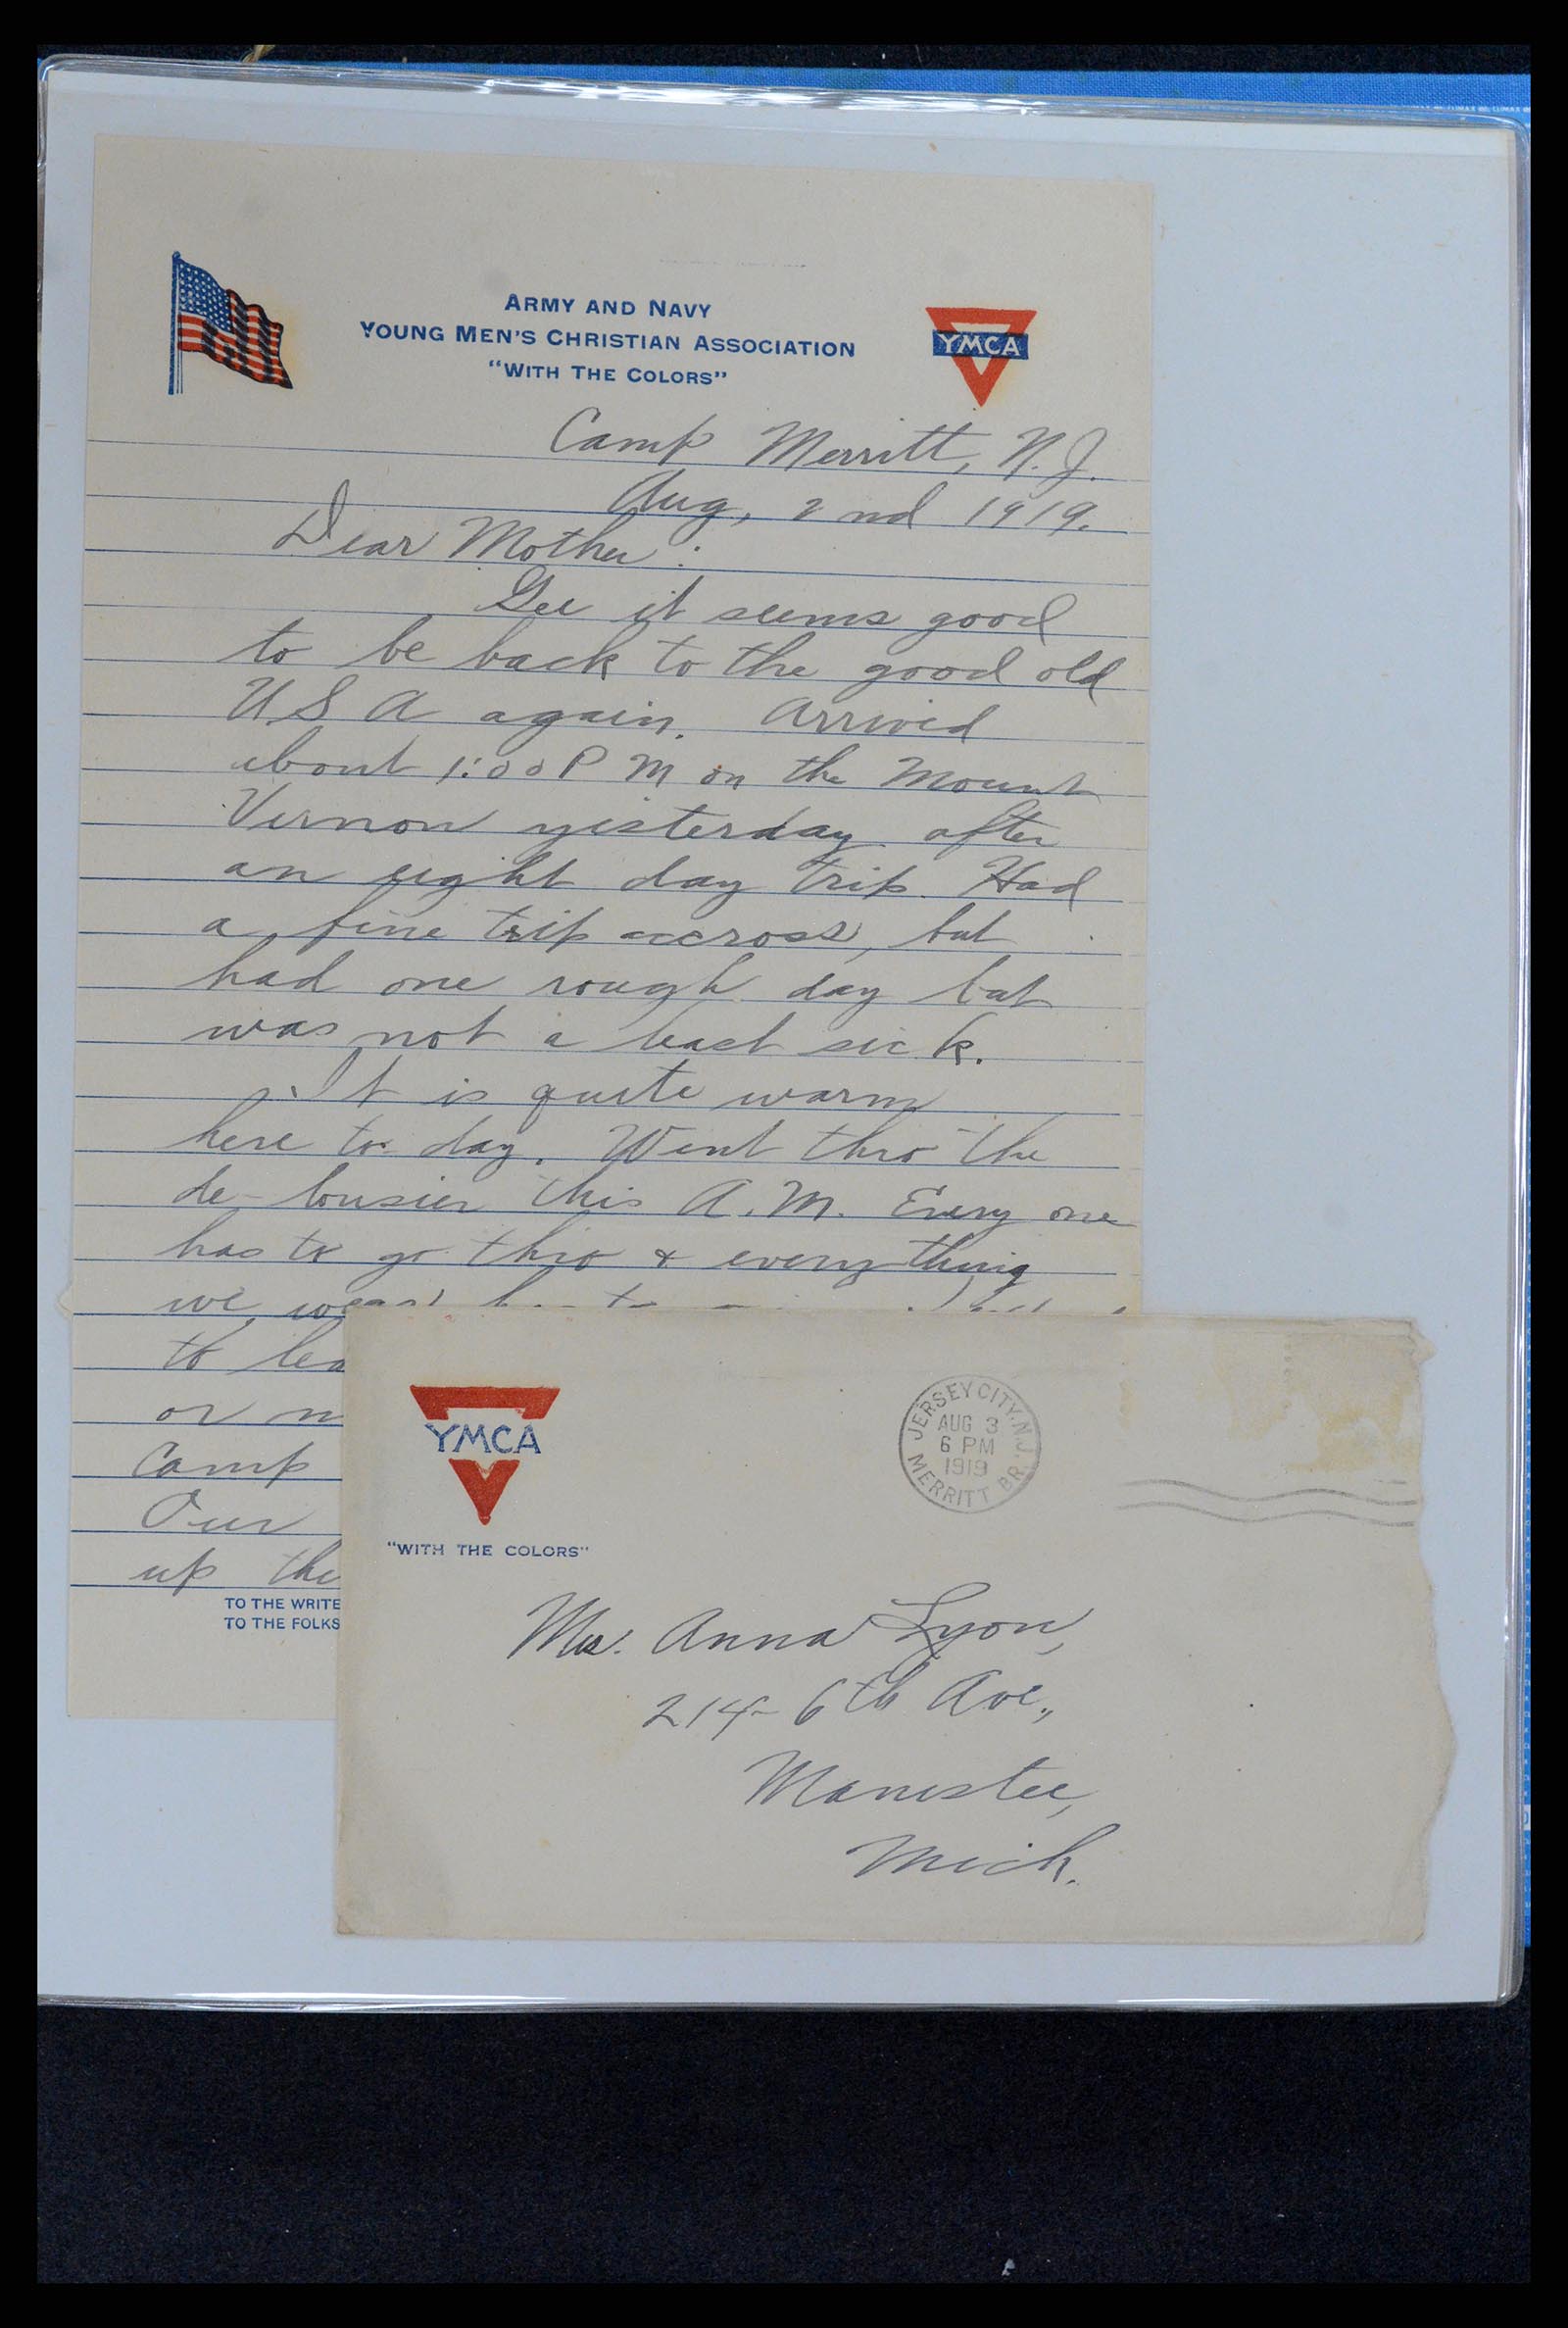 ARMY AND NAVY
YOUNG MEN'S CHRISTIAN ASSOCIATION
"WITH THE COLORS"
YMCA
Camp Merritt, N.J.
Aug, 2nd 1919.
Dear Mother:
Gee it seems good
to be back to the good old
U.S A again. Arrived
about 1:00 P M on the Mount
Vernon yesterday after
an eight day trip. Had
a fine trip accross, but
had one rough day but
was not a least sick.
It is quite warm
here to day. Went thro the
de-lousier this A.M. Every one
has to go thro & every thing
we
to
or
Camp
Our
up the
TO THE WRITE
TO THE FOLKS
YMCA
"WITH THE COLORS"
JERSEY CITY, N.J.
AUG 3
6 PM
1919
MERRITT BR.
Mrs. Anna Lyon,
214- 6th Ave.,
Manistee,
Mich.